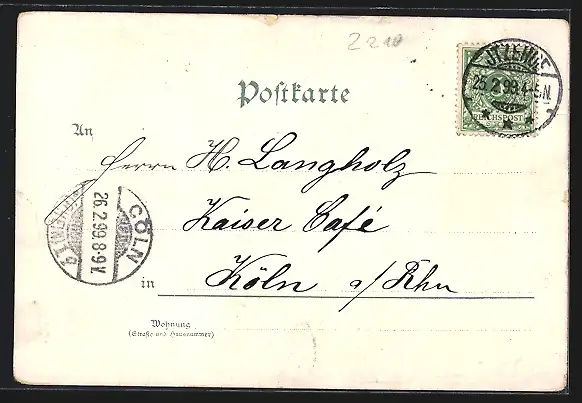 2210
JTZEHOE
25.2.99.4-5.N.
REICHSPOST
Postkarte
An
Herrn H. Langholz
Kaiser Café
in Köln a/Rhn
CÖLN
26.2.99.8-9V.
Wohnung
(Straße und Hausnummer)